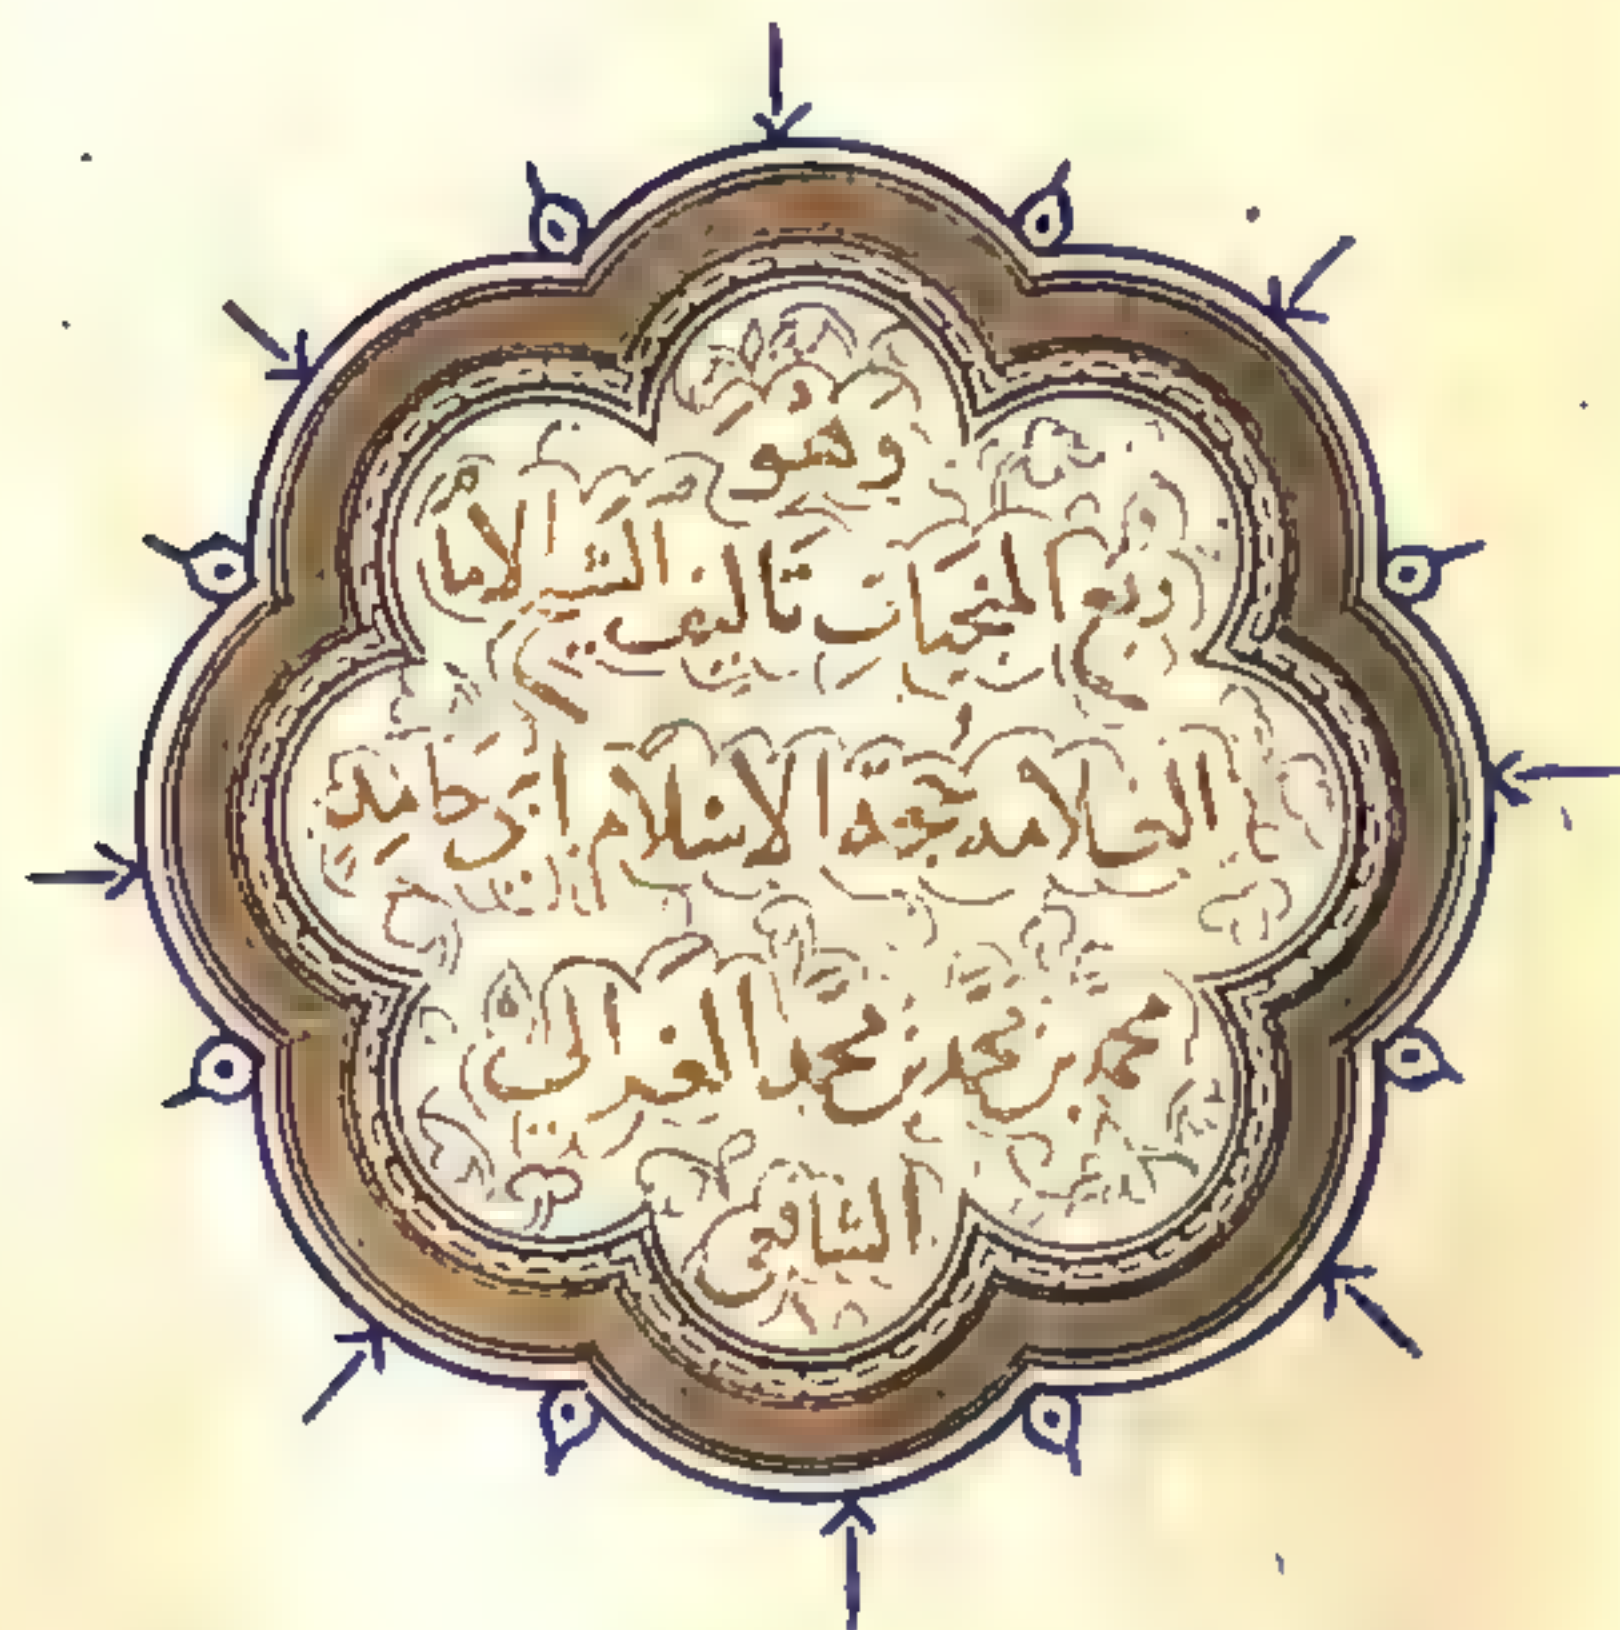 وهو
ربع المنجيات تأليف الشيخ الامام
العلامه حجة الاسلام ابى حامد
محمد بن محمد بن محمد الغزالى
الشافعى